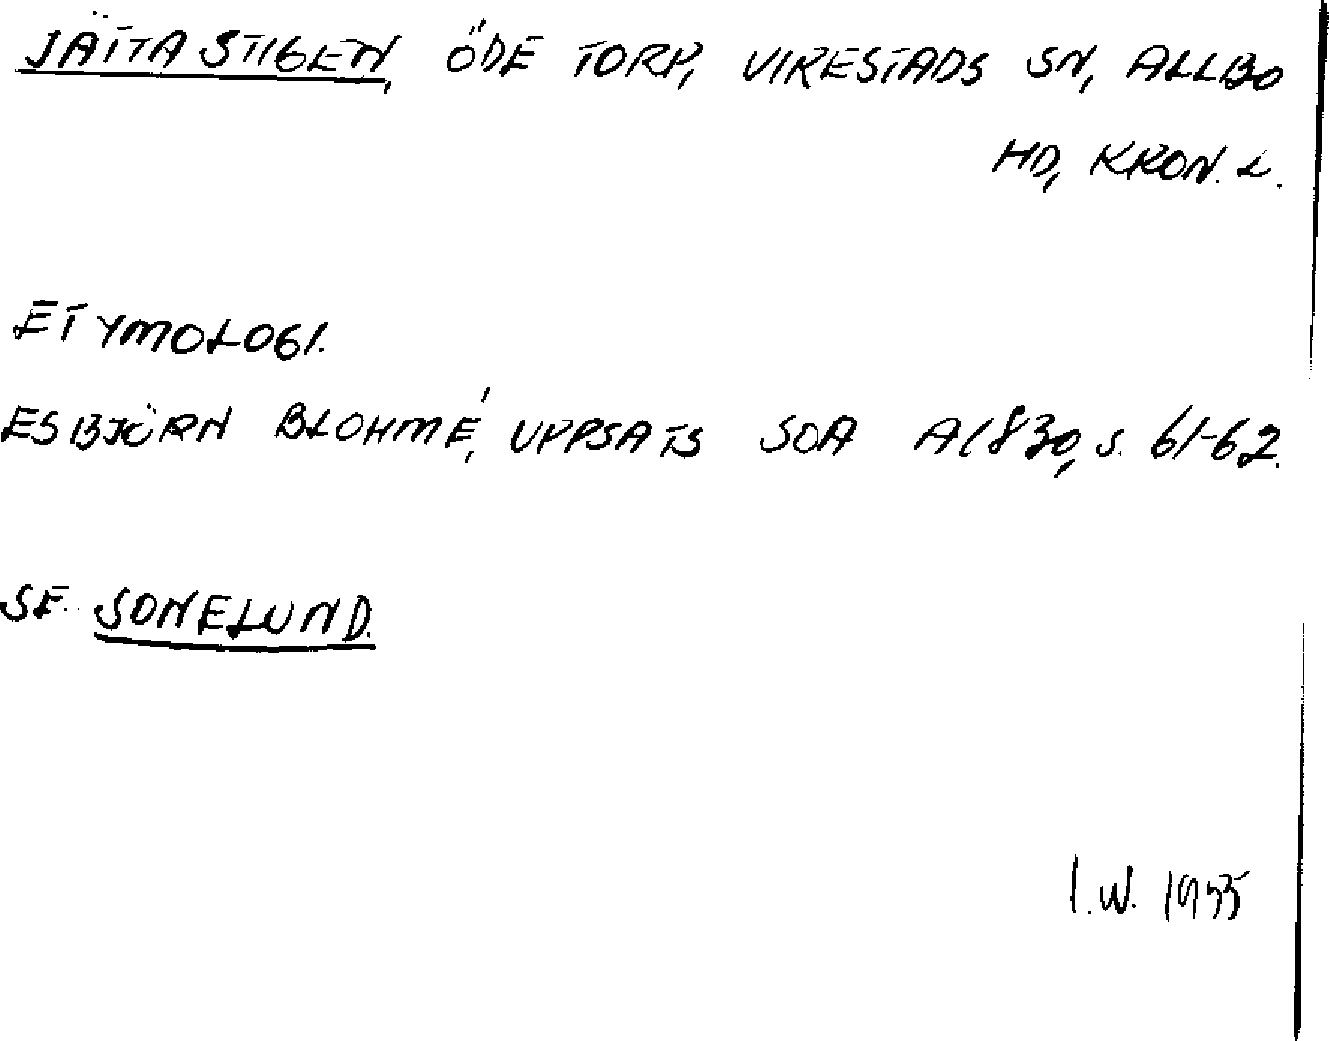 JÄTTASTIGEN, ÖDE TORP, VIRESTADS SN, ALLBO
HD, KRON. L.
ETYMOLOGI.
ESBJÖRN BLOHMÉ, UPPSATS SOA A1830, S. 61-62.
SE SONELUND.
I.W. 1955